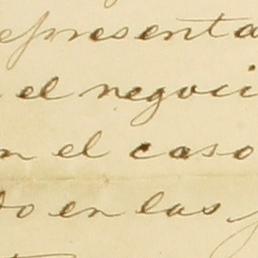 representa
el negoci
n el caso
do en las